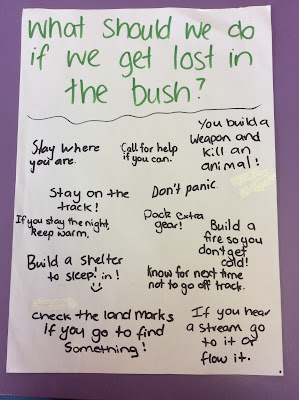 What should we do
if we get lost in
the bush?
You build a
weapon and
kill an
animal!
Stay where
you are.
Call for help
if you can.
Stay on the
track!
Don't panic.
If you stay the night,
keep warm.
Pack extra
gear!
Build a
fire so you
don't get
cold!
Build a shelter
to sleep in!
Know for next time
not to go off track.
Check the land marks
if you go to find
something!
If you hear
a stream go
to it or
flow it.